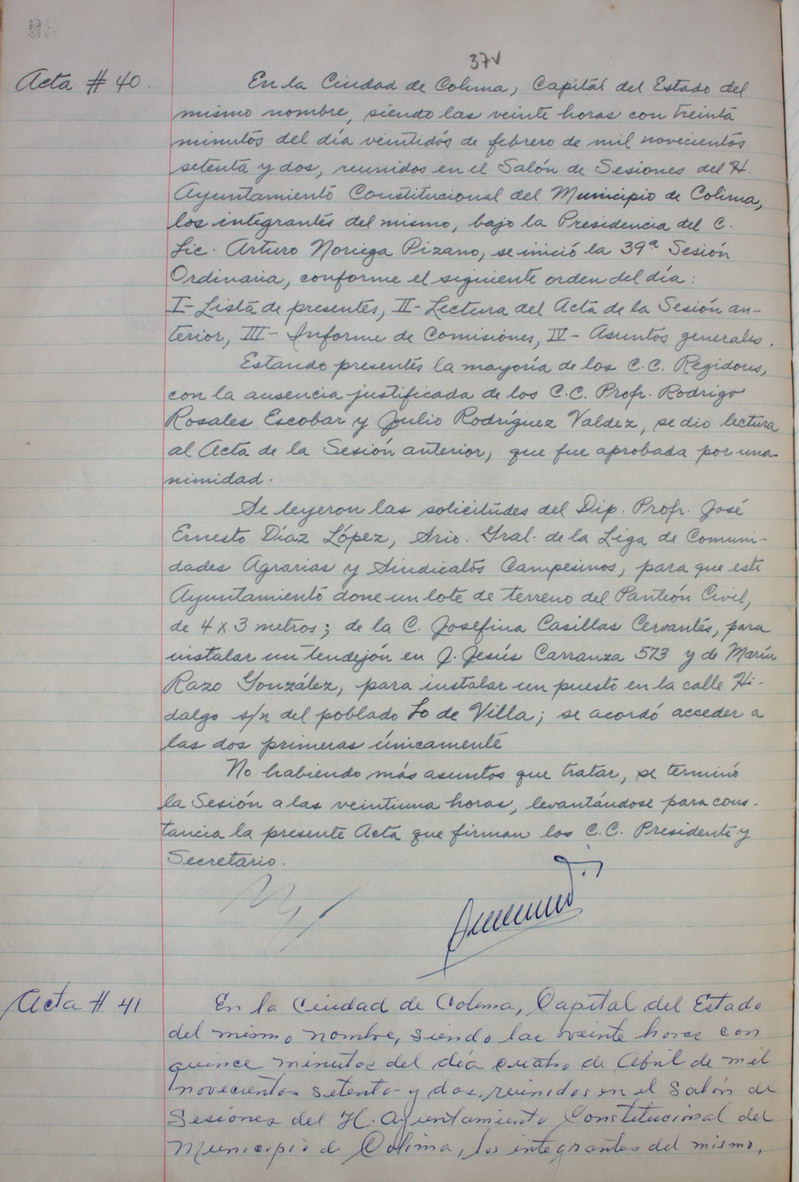 37v
Acta # 40. En la Ciudad de Colima, Capital del Estado del
mismo nombre, siendo las veinte horas con treinta
minutos del día veintidós de febrero de mil novecientos
setenta y dos, reunidos en el Salón de Sesiones del H.
Ayuntamiento Constitucional del Municipio de Colima,
los integrantes del mismo, bajo la Presidencia del C.
Lic. Arturo Noriega Pizano, se inició la 39ª Sesión
Ordinaria, conforme el siguiente orden del día:
I- Lista de presentes, II- Lectura del Acta de la Sesión an-
terior, III- Informe de Comisiones, IV- Asuntos generales.
Estando presentes la mayoría de los C.C. Regidores,
con la ausencia justificada de los C.C. Profr. Rodrigo
Rosales Escobar y Julio Rodríguez Valdez, se dio lectura
al Acta de la Sesión anterior, que fue aprobada por una-
nimidad.
Se leyeron las solicitudes del Dip. Profr. José
Ernesto Díaz López, Srio. Gral. de la Liga de Comuni-
dades Agrarias y Sindicatos Campesinos, para que este
Ayuntamiento done un lote de terreno del Panteón Civil,
de 4 x 3 metros; de la C. Josefina Casillas Cervantes, para
instalar un tendejón en J. Jesús Carranza 573 y de María
Razo González, para instalar un puesto en la calle Hi-
dalgo s/n del poblado Lo de Villa; se acordó acceder a
las dos primeras únicamente
No habiendo más asuntos que tratar, se terminó
la Sesión a las veintiuna horas, levantándose para cons-
tancia la presente Acta que firman los C.C. Presidente y
Secretario.
Acta # 41 En la Ciudad de Colima, Capital del Estado
del mismo nombre, siendo las veinte horas con
quince minutos del día cuatro de Abril de mil
novecientos setenta y dos, reunidos en el Salón de
Sesiones del H. Ayuntamiento Constitucional del
Municipio de Colima, los integrantes del mismo,